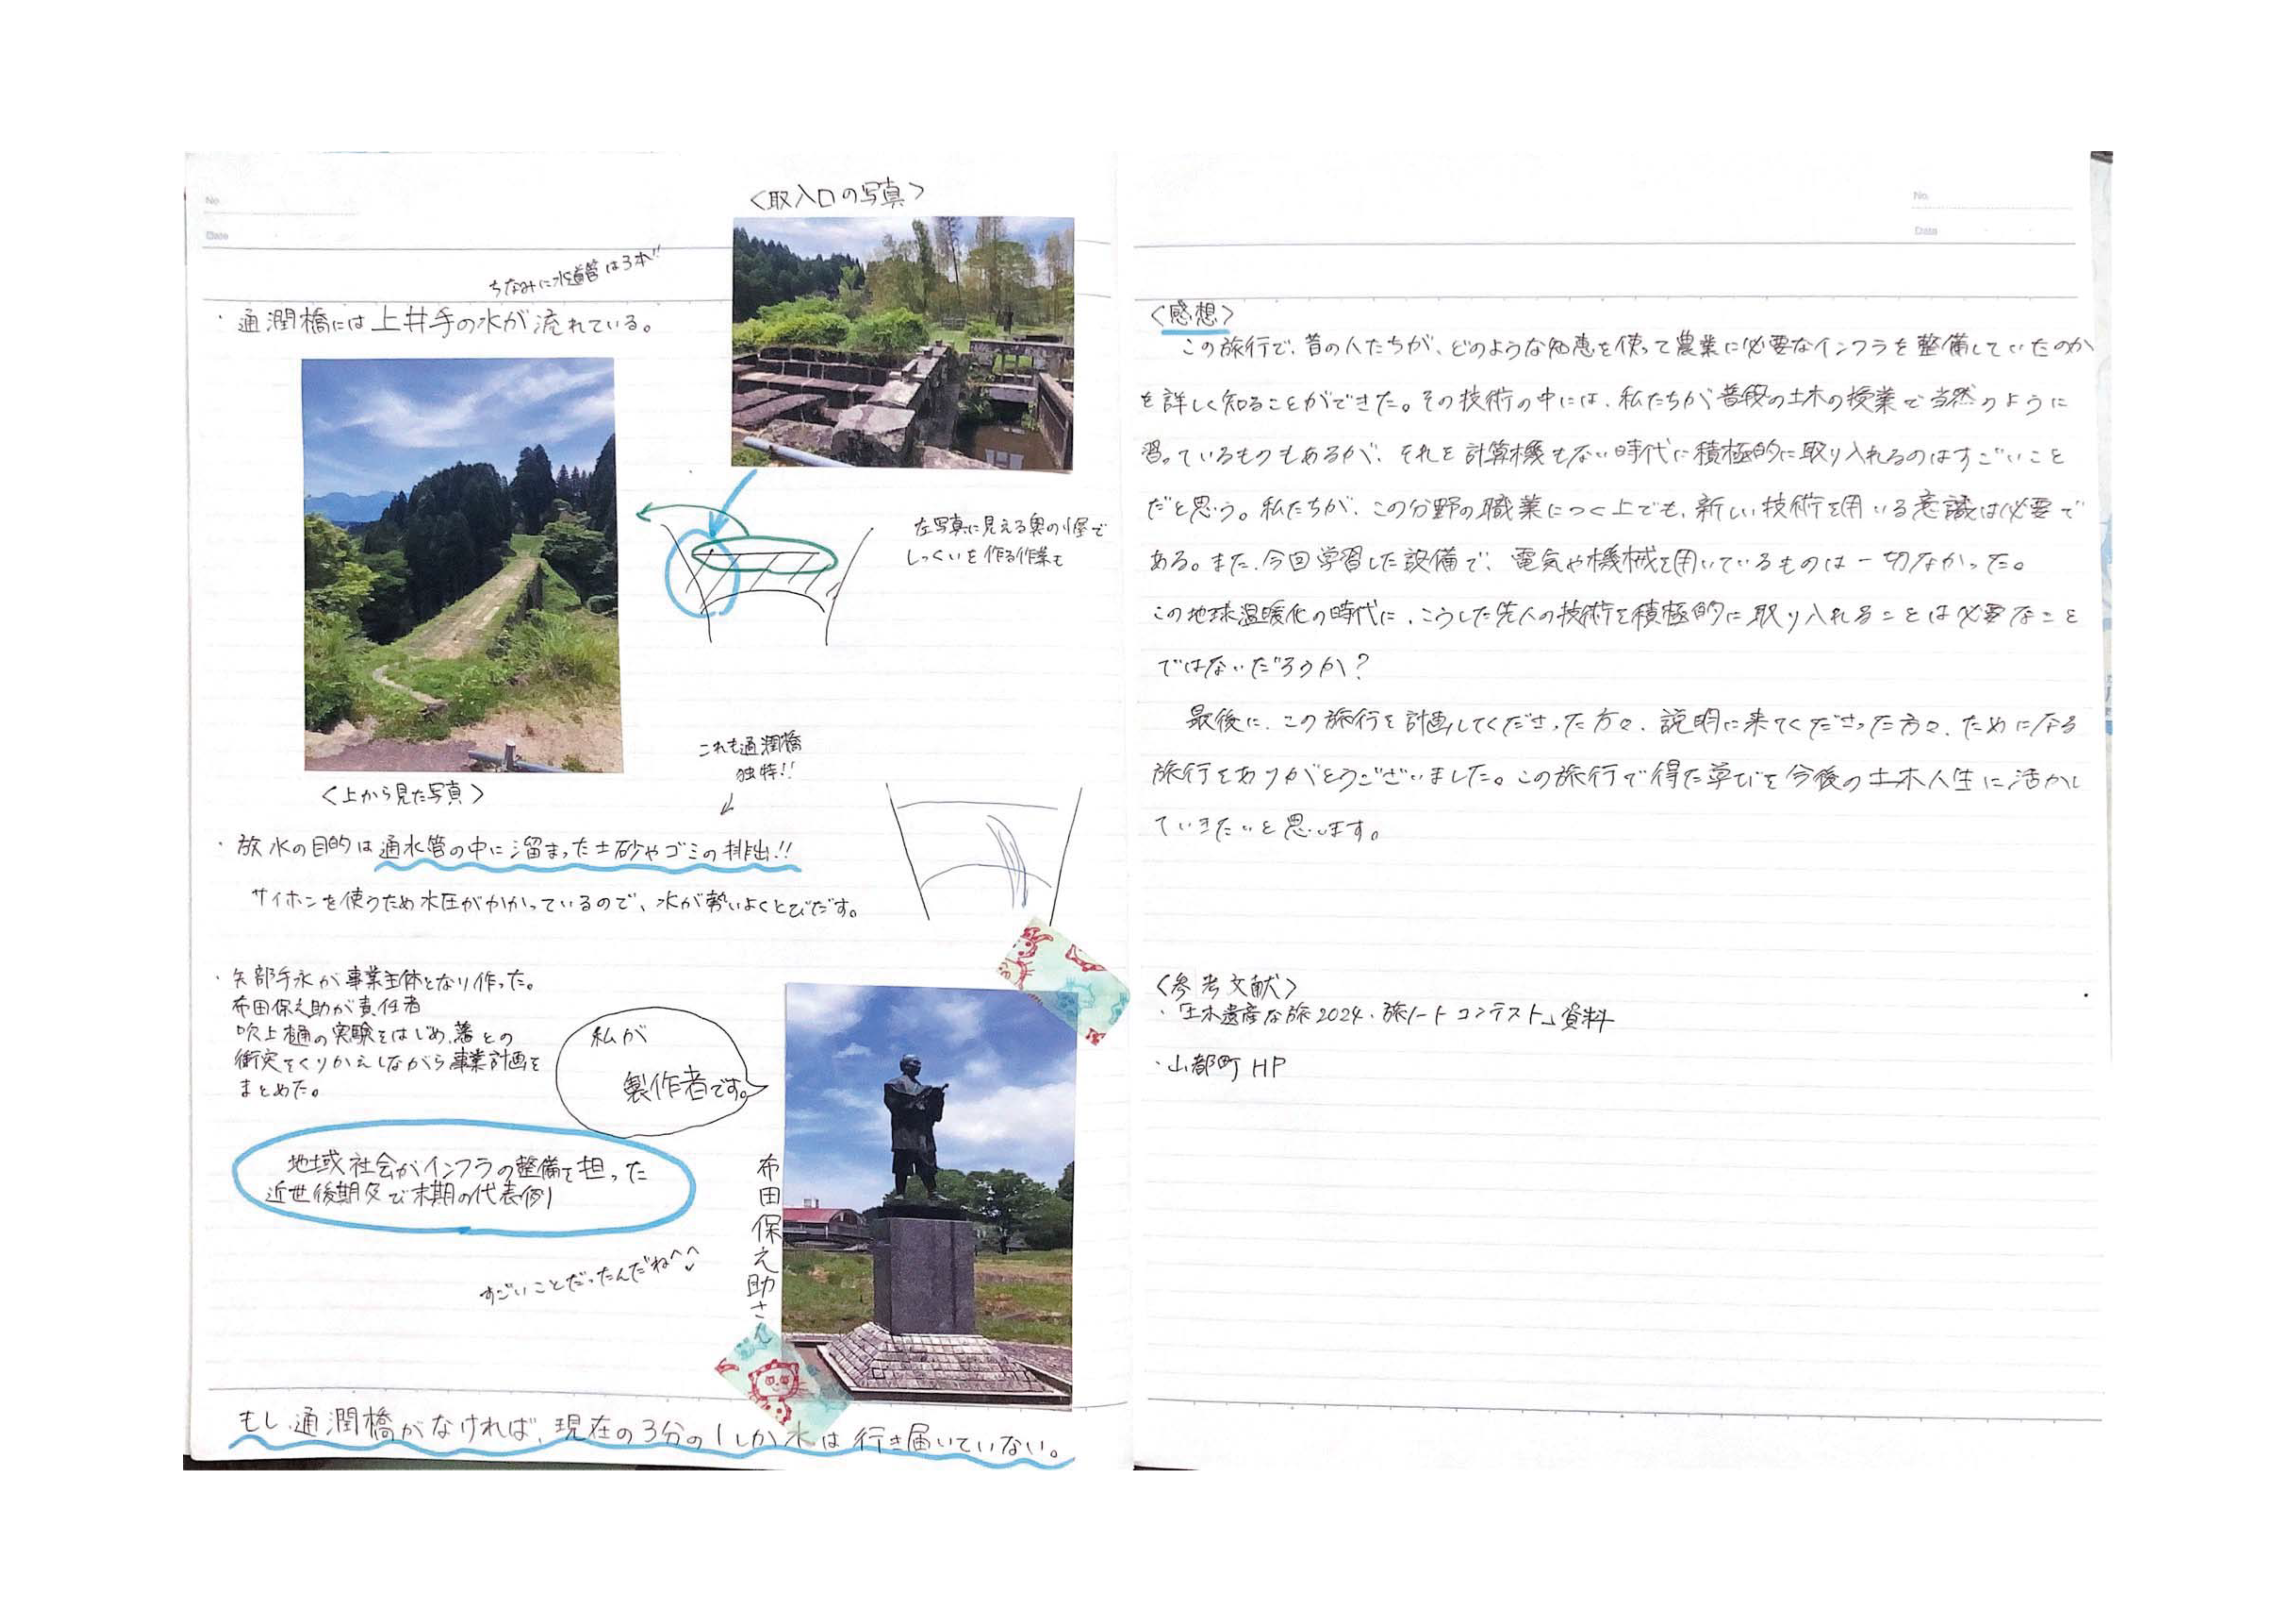 No.
Date
<取入口の写真>
ちなみに水道管は3本!!
・通潤橋には上井手の水が流れている。
左写真に見える奥の小屋で
しっくいを作る作業も
<上から見た写真>
これも通潤橋
独特!!
・放水の目的は通水管の中に溜まった土砂やゴミの排出!!
サイホンを使うため水圧がかかっているので、水が勢いよくとびだす。
・矢部手永が事業主体となり作った。
布田保之助が責任者
吹上樋の実験をはじめ、藩との
衝突をくりかえしながら事業計画を
まとめた。
私が
製作者です。
地域社会がインフラの整備を担った
近世後期及び末期の代表例
すごいことだったんだね^^
布田保之助さん
もし通潤橋がなければ、現在の3分の1しか水は行き届いていない。
No.
Date
<感想>
この旅行で、昔の人たちが、どのような知恵を使って農業に必要なインフラを整備していたのか
を詳しく知ることができた。その技術の中には、私たちが普段の土木の授業で当然のように
習っているものもあるが、それを計算機もない時代に積極的に取り入れるのはすごいこと
だと思う。私たちが、この分野の職業につく上でも、新しい技術を用いる意識は必要で
ある。また、今回学習した設備で、電気や機械を用いているものは一切なかった。
この地球温暖化の時代に、こうした先人の技術を積極的に取り入れることは必要なこと
ではないだろうか?
最後に、この旅行を計画してくださった方々、説明に来てくださった方々、ためになる
旅行をありがとうございました。この旅行で得た学びを今後の土木人生に活かし
ていきたいと思います。
<参考文献>
・「土木遺産な旅2024・旅ノートコンテスト」資料
・山都町HP